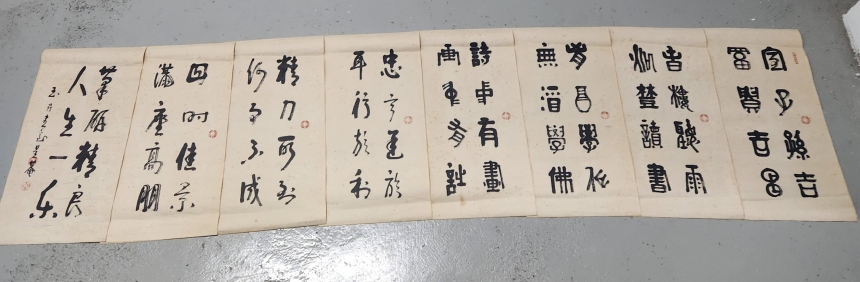 宜子孫吉
富貴吉昌
聽雨
讀書
有酒學仙
無酒學佛
詩中有畫
畫中有詩
忠言逆於
耳行於利
精力所到
何事不成
四時佳景
滿座高朋
筆研精良
人生一樂